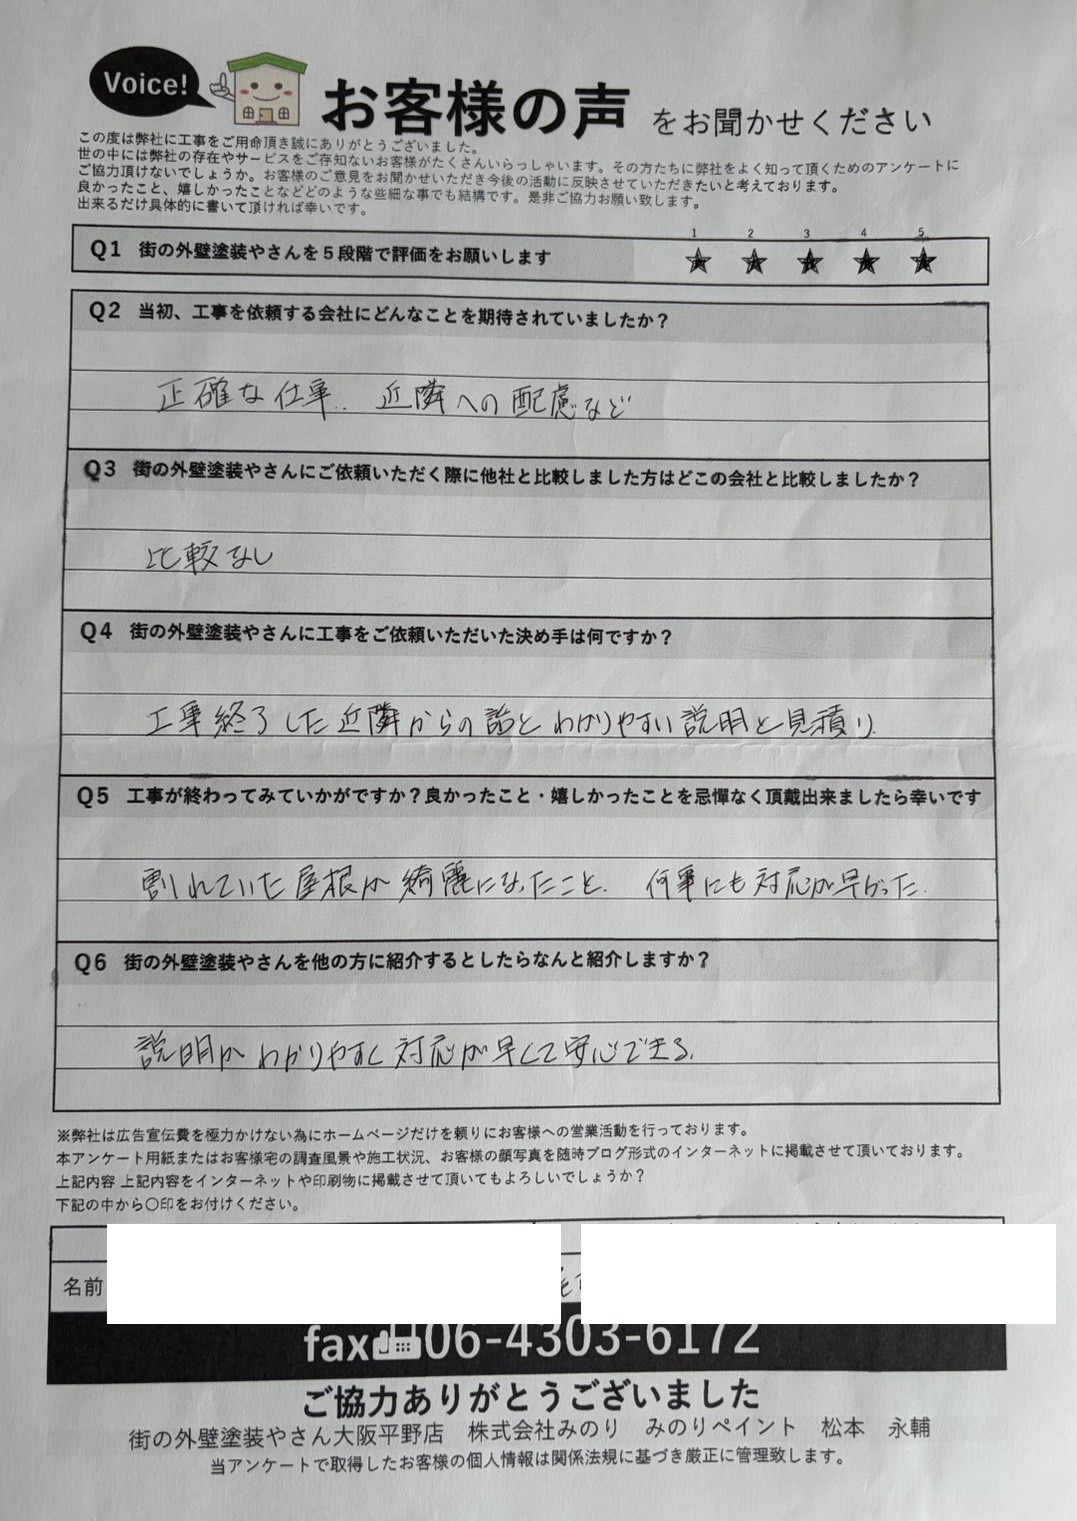 Voice!
お客様の声 をお聞かせください
この度は弊社に工事をご用命頂き誠にありがとうございました。
世の中には弊社の存在やサービスをご存知ないお客様がたくさんいらっしゃいます。その方たちに弊社をよく知って頂くためのアンケートに
ご協力頂けないでしょうか。お客様のご意見をお聞かせいただき今後の活動に反映させていただきたいと考えております。
良かったこと、嬉しかったことなどどのような些細な事でも結構です。是非ご協力お願い致します。
出来るだけ具体的に書いて頂ければ幸いです。
1 2 3 4 5
Q1 街の外壁塗装やさんを５段階で評価をお願いします
Q2 当初、工事を依頼する会社にどんなことを期待されていましたか？
正確な仕事.. 近隣への配慮など
Q3 街の外壁塗装やさんにご依頼いただく際に他社と比較しました方はどこの会社と比較しましたか？
比較なし
Q4 街の外壁塗装やさんに工事をご依頼いただいた決め手は何ですか？
工事終了した近隣からの話とわかりやすい説明と見積り
Q5 工事が終わってみていかがですか？良かったこと・嬉しかったことを忌憚なく頂戴出来ましたら幸いです
割れていた屋根が綺麗になったこと. 何事にも対応が早かった.
Q6 街の外壁塗装やさんを他の方に紹介するとしたらなんと紹介しますか？
説明がわかりやすく対応が早くて安心できる.
※弊社は広告宣伝費を極力かけない為にホームページだけを頼りにお客様への営業活動を行っております。
本アンケート用紙またはお客様宅の調査風景や施工状況、お客様の顔写真を随時ブログ形式のインターネットに掲載させて頂いております。
上記内容 上記内容をインターネットや印刷物に掲載させて頂いてもよろしいでしょうか？
下記の中から〇印をお付けください。
名前
fax 06-4303-6172
ご協力ありがとうございました
街の外壁塗装やさん大阪平野店 株式会社みのり みのりペイント 松本 永輔
当アンケートで取得したお客様の個人情報は関係法規に基づき厳正に管理致します。